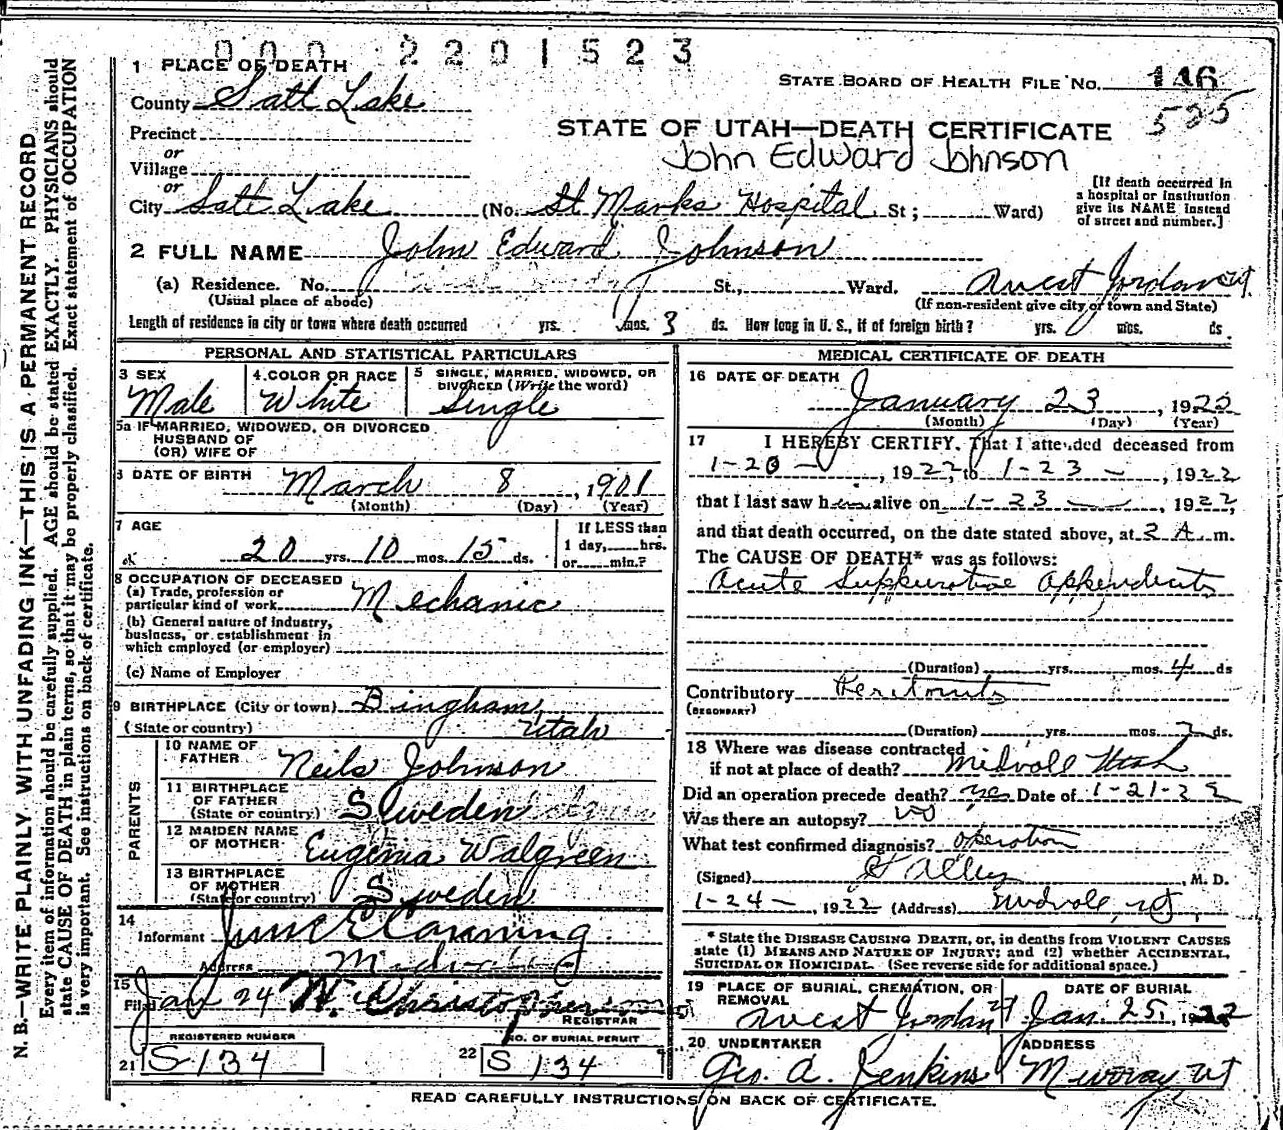 000 2201523
1 PLACE OF DEATH
STATE BOARD OF HEALTH FILE No. 146
525
County Salt Lake
STATE OF UTAH—DEATH CERTIFICATE
Precinct
John Edward Johnson
or
Village
or
City Salt Lake (No. St Marks Hospital St; Ward)
[If death occurred in
a hospital or institution
give its NAME instead
of street and number.]
2 FULL NAME John Edward Johnson
(a) Residence. No. St., Ward. West Jordan Ut.
(Usual place of abode) (If non-resident give city or town and State)
Length of residence in city or town where death occurred yrs. mos. 3 ds. How long in U. S., if of foreign birth? yrs. mos. ds.
PERSONAL AND STATISTICAL PARTICULARS
3 SEX Male
4 COLOR OR RACE White
5 SINGLE, MARRIED, WIDOWED, OR
DIVORCED (Write the word)
Single
5a IF MARRIED, WIDOWED, OR DIVORCED
HUSBAND OF
(OR) WIFE OF
6 DATE OF BIRTH March 8, 1901
(Month) (Day) (Year)
7 AGE
20 yrs. 10 mos. 15 ds.
If LESS than
1 day, hrs.
or min.?
8 OCCUPATION OF DECEASED
(a) Trade, profession or
particular kind of work Mechanic
(b) General nature of industry,
business, or establishment in
which employed (or employer)
(c) Name of Employer
9 BIRTHPLACE (City or town) Bingham,
(State or country) Utah
PARENTS
10 NAME OF
FATHER Neils Johnson
11 BIRTHPLACE
OF FATHER
(State or country) Sweden
12 MAIDEN NAME
OF MOTHER Eugenia Walgreen
13 BIRTHPLACE
OF MOTHER
(State or country) Sweden
14
Informant
Address
15
Filed Jan 24
REGISTRAR
REGISTERED NUMBER
21 S 134
NO. OF BURIAL PERMIT
22 S 134
MEDICAL CERTIFICATE OF DEATH
16 DATE OF DEATH
January 23, 1922
(Month) (Day) (Year)
17 I HEREBY CERTIFY, That I attended deceased from
1-20-, 1922, to 1-23-, 1922
that I last saw him alive on 1-23-, 1922,
and that death occurred, on the date stated above, at 2 A. m.
The CAUSE OF DEATH* was as follows:
Acute Suppurative Appendicits
(Duration) yrs. mos. 4 ds
Contributory Peritonits
(SECONDARY)
(Duration) yrs. mos. 2 ds.
18 Where was disease contracted
if not at place of death? Midvale Utah
Did an operation precede death? yes Date of 1-21-22
Was there an autopsy? no
What test confirmed diagnosis? operation
(Signed) M. D.
1-24-, 1922 (Address) Midvale, Ut,
* State the DISEASE CAUSING DEATH, or, in deaths from VIOLENT CAUSES
state (1) MEANS AND NATURE OF INJURY; and (2) whether ACCIDENTAL,
SUICIDAL OR HOMICIDAL. (See reverse side for additional space.)
19 PLACE OF BURIAL, CREMATION, OR
REMOVAL
West Jordan Ut
DATE OF BURIAL
Jan. 25, 1922
20 UNDERTAKER
Geo. A. Jenkins
ADDRESS
Murray Ut
READ CAREFULLY INSTRUCTIONS ON BACK OF CERTIFICATE.
N. B.—WRITE PLAINLY, WITH UNFADING INK—THIS IS A PERMANENT RECORD
Every item of information should be carefully supplied. AGE should be stated EXACTLY. PHYSICIANS should
state CAUSE OF DEATH in plain terms, so that it may be properly classified. Exact statement of OCCUPATION
is very important. See instructions on back of certificate.